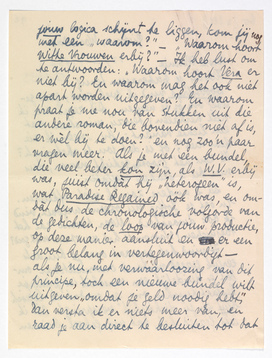 jouw logica schijnt te liggen, kom jij nog
met een „waarom?” — „Waarom hoort
Witte Vrouwen erbij?” — Ik heb lust om
te antwoorden: „Waarom hoort Vera er
niet bij? En waarom mag het ook niet
apart worden uitgegeven? En waarom
praat je me nou van stukken uit die
andere roman, die bovendien niet af is,
er wel bij te doen?” en nog zoo'n paar
vragen meer. Als je met een bundel,
die veel beter kon zijn, als W.V. erbij
was, juist omdat hij „heterogeen” is,
wat Paradise Regained ook was, en om-
dat dus de chronologische volgorde van
de gedichten, de loop van jouw productie,
op deze manier aansluit en er een
groot belang in vertegenwoordigt —
als je nu, met verwaarloozing van dit
principe, toch een nieuwe bundel wilt
uitgeven „omdat je geld noodig hebt”,
dan versta ik er niets meer van, en
raad je aan direct te besluiten tot dat